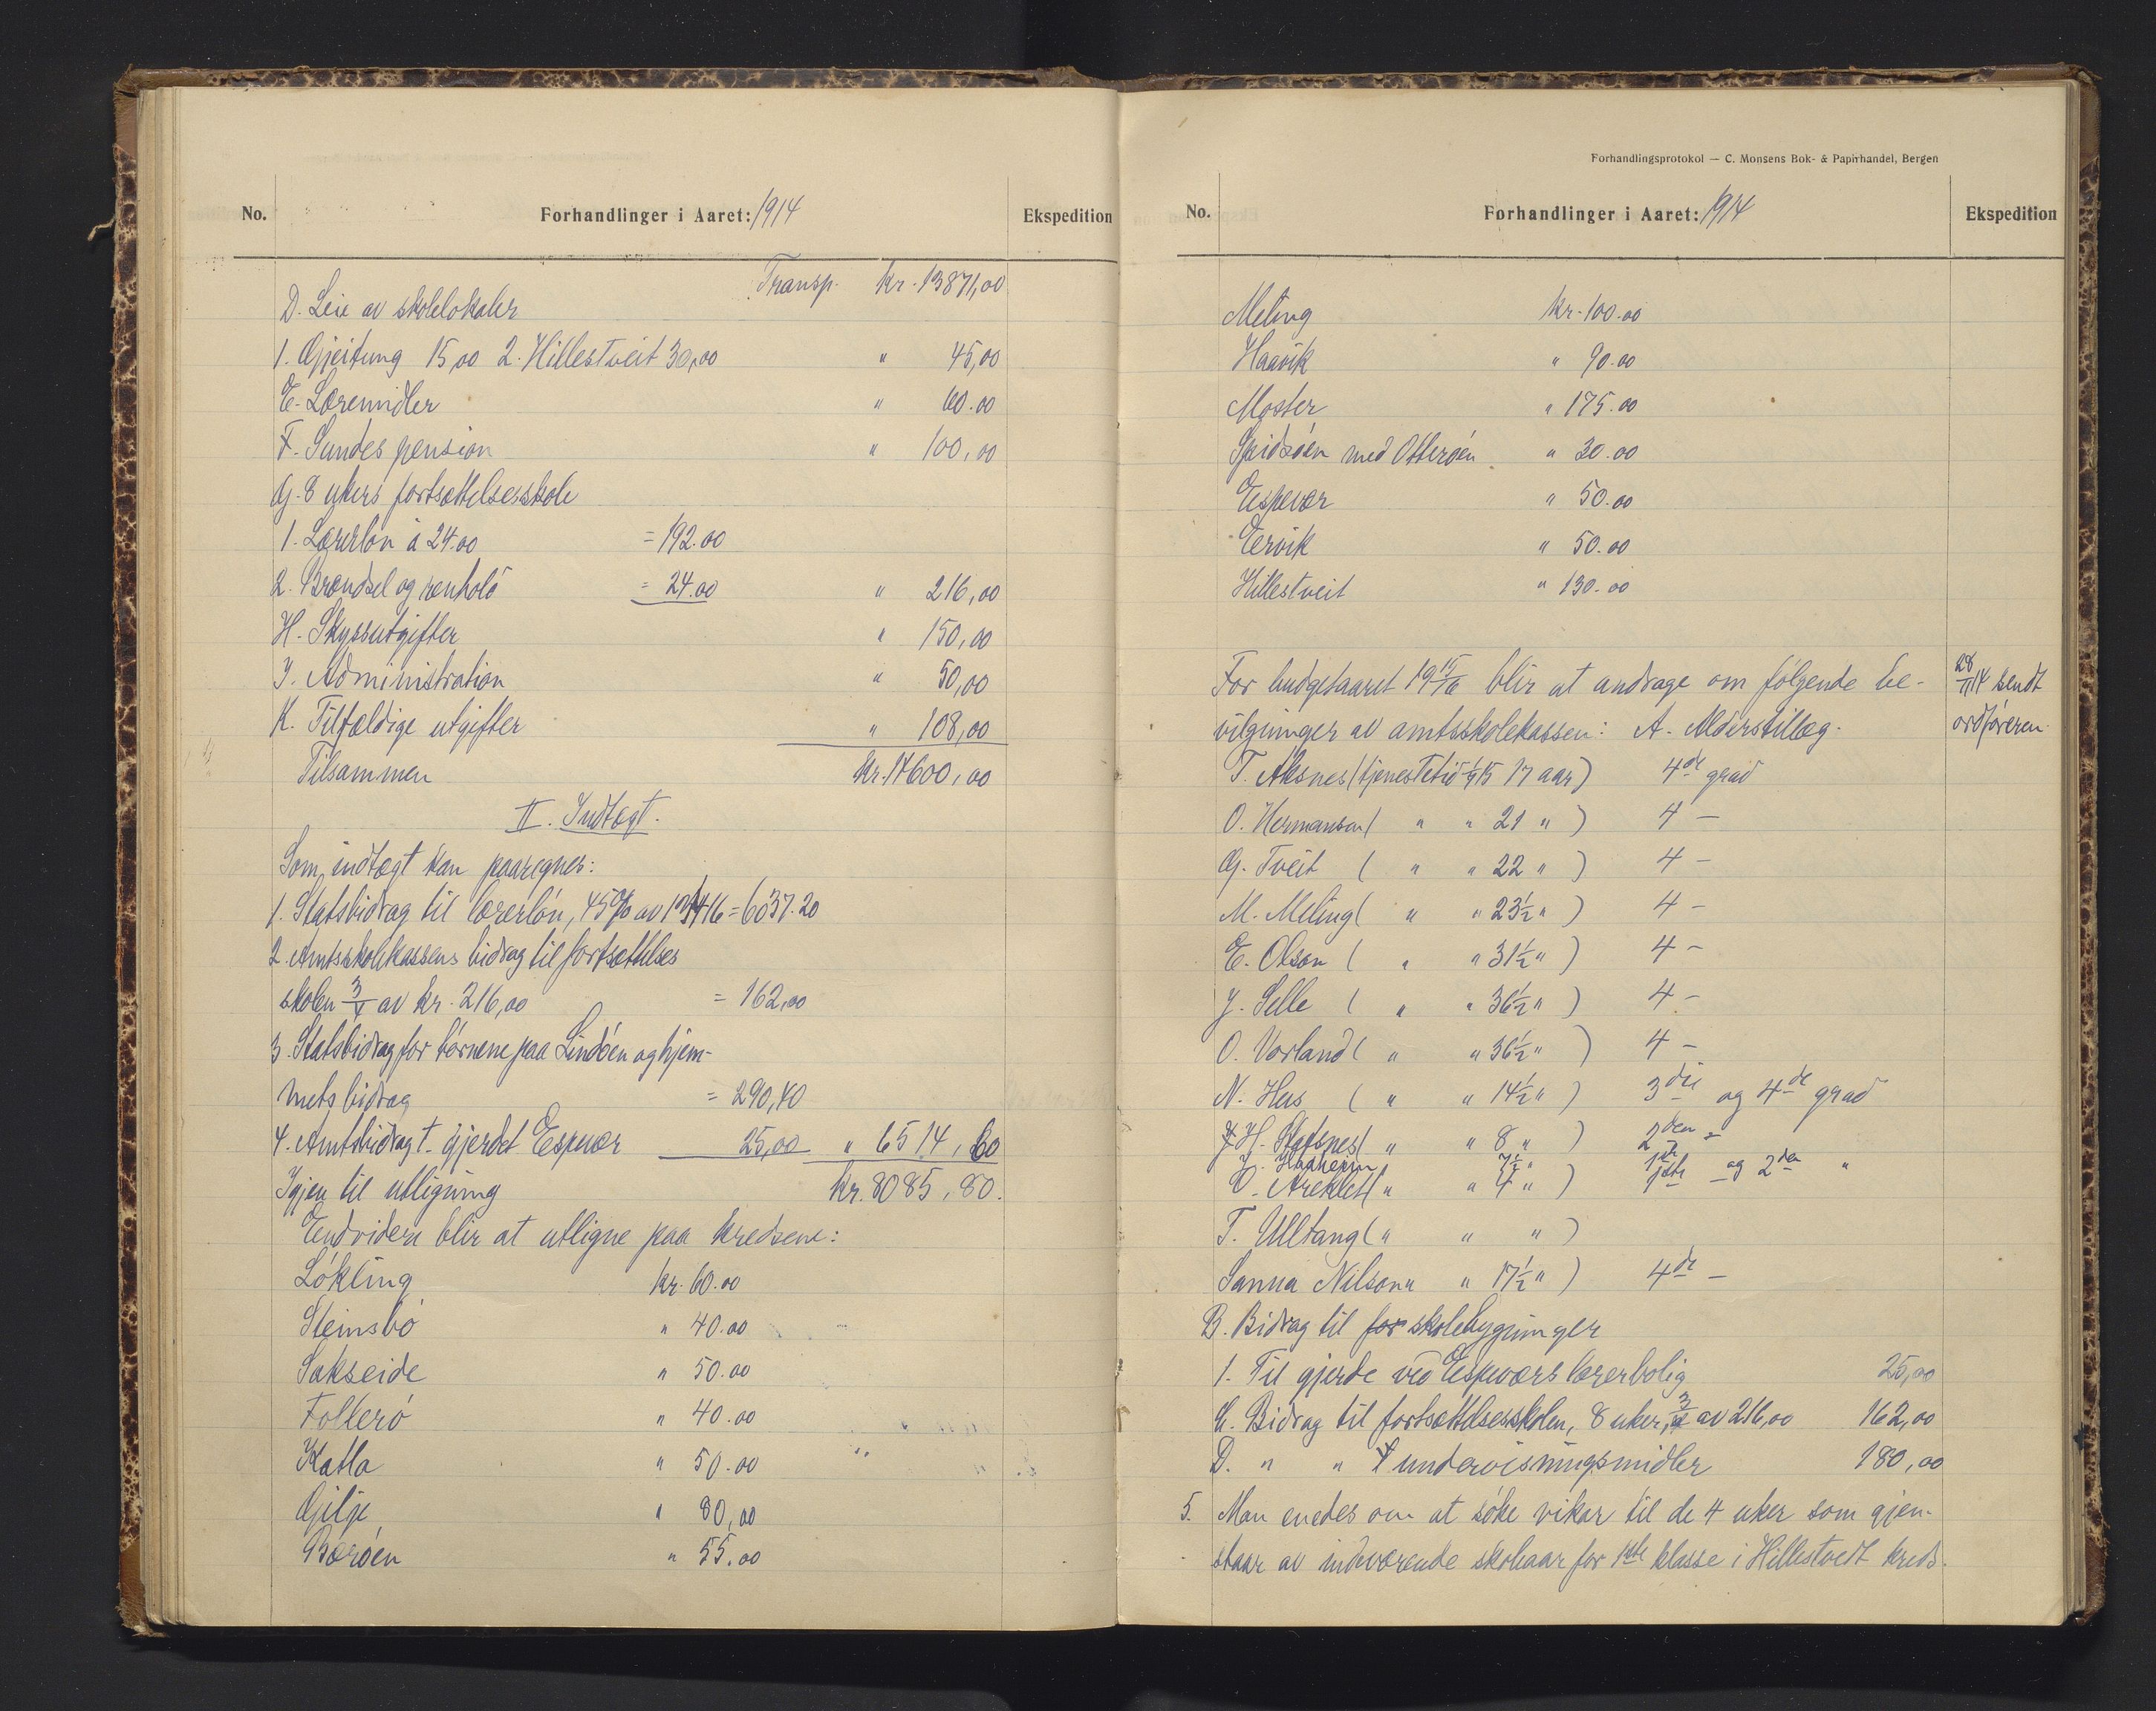 No.
Forhandlinger i Aaret: 1914
Ekspedition
Transp. kr. 13871,00
D. Leie av skolelokaler
1. Gjeitung 15,00 2. Hillestveit 30,00 " 45,00
E. Læremidler " 60.00
F. Sundes pension " 100,00
G. 8 ukers fortsættelsesskole
1. Lærerløn á 24.00 = 192.00
2. Brændsel og renhold = 24.00 " 216,00
H. Skyssutgifter " 150,00
I. Administration " 50,00
K. Tilfældige utgifter " 108,00
Tilsammen kr. 14600,00
II. Indtægt.
Som indtægt kan paaregnes:
1. Statsbidrag til lærerløn, 45% av 13416 = 6037.20
2. Amtsskolekassens bidrag til fortsættelses
skolen 3/4 av kr. 216,00 = 162,00
3. Statsbidrag for børnene paa Lindøen og hjem-
mets bidrag = 290,40
4. Amtsbidrag t. gjerdet Espevær 25,00 " 6514,60
Igjen til utligning kr. 8085,80.
Endvidere blir at utligne paa kredsene:
Løkling kr. 60.00
Steinsbø " 40.00
Sakseide " 50.00
Folkerø " 40.00
Katla " 50.00
Gilje " 80,00
Børøen " 55.00
Forhandlingsprotokol — C. Monsens Bok- & Papirhandel, Bergen
No.
Forhandlinger i Aaret: 1914
Ekspedition
Meling kr. 100.00
Haavik " 90.00
Moster " 175.00
Spidsøen med Otterøen " 30.00
Espevær " 50.00
Eervik " 50.00
Hillestveit " 130.00
For budgetaaret 1915/16 blir at andrage om følgende be-
28/11 14 sendt
vilgninger av amtsskolekassen: A. Alderstillæg.
ordføreren.
T. Aksnes (tjenestetid 1/4 15 17 aar) 4de grad
O. Hermansen ( " " 21 " ) 4 —
G. Tveit ( " " 22 " ) 4 —
M. Meling ( " " 23 1/2 " ) 4 —
E. Olson ( " " 31 1/2 " ) 4 —
J. Selle ( " " 36 1/2 " ) 4 —
O. Vorland ( " " 36 1/2 " ) 4 —
N. Hus ( " " 14 1/2 " ) 3die og 4de grad
H. Stafsnes ( " " 8 " ) 2den "
J. Haaheim 7 1/2 " 1ste
O. Areklet ( " " 4 " ) 1ste og 2den "
T. Ulltang ( " " " )
Sanna Nilson " " 17 1/2 " ) 4de —
B. Bidrag til for skolebygninger
1. Til gjerde ved Espeværs lærerbolig 25,00
C. Bidrag til fortsættelsesskolen, 8 uker, 3/4 av 216,00 162,00
D. " " t undervisningsmidler 180,00
5. Man enedes om at søke vikar til de 4 uker som gjen-
staar av indeværende skoleaar for 1ste klasse i Hillestvedt kreds.